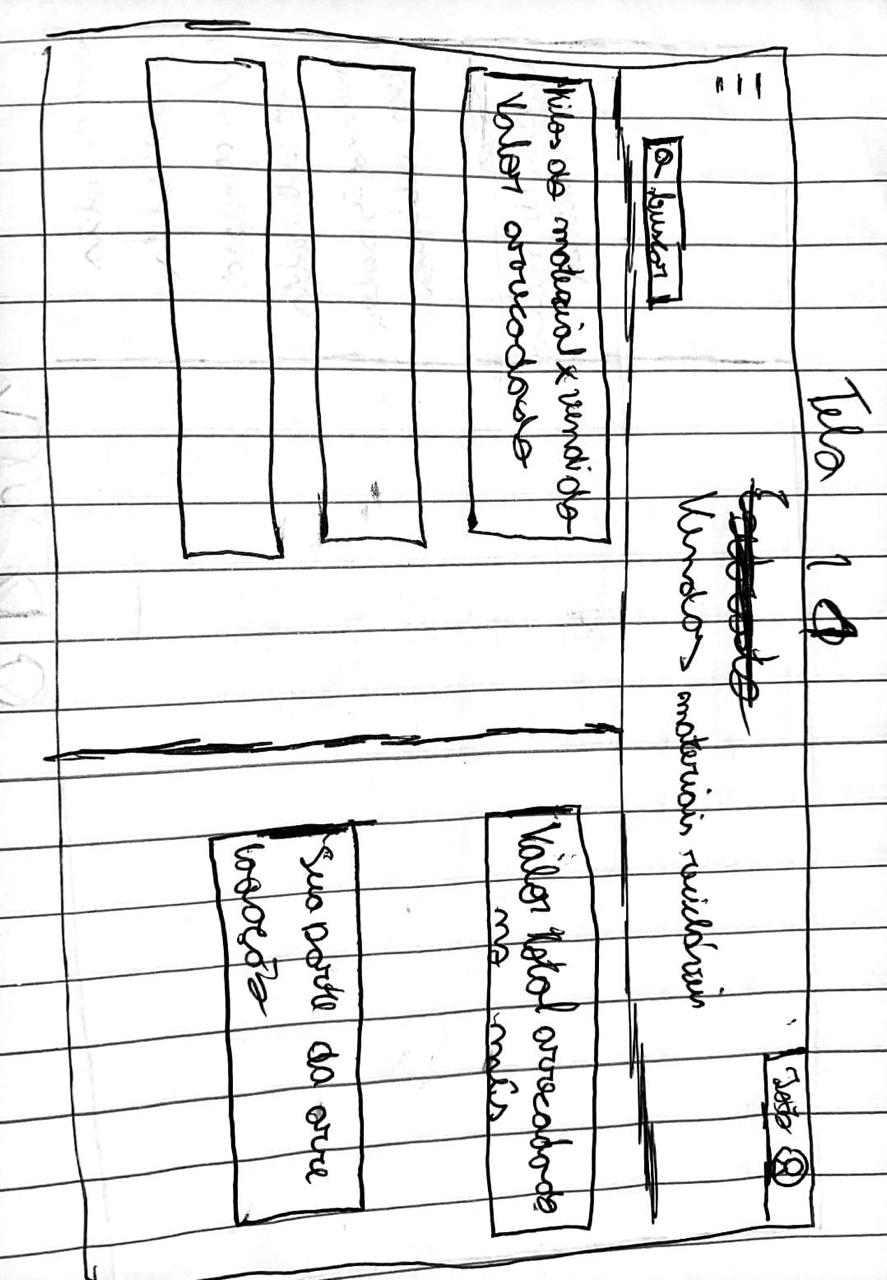 Tela 1
João
Vendas materiais recicláveis
buscar
kilos de material x vendido
Valor arrecadado
Valor total arrecadado
no mês
Sua parte da arre
cadação